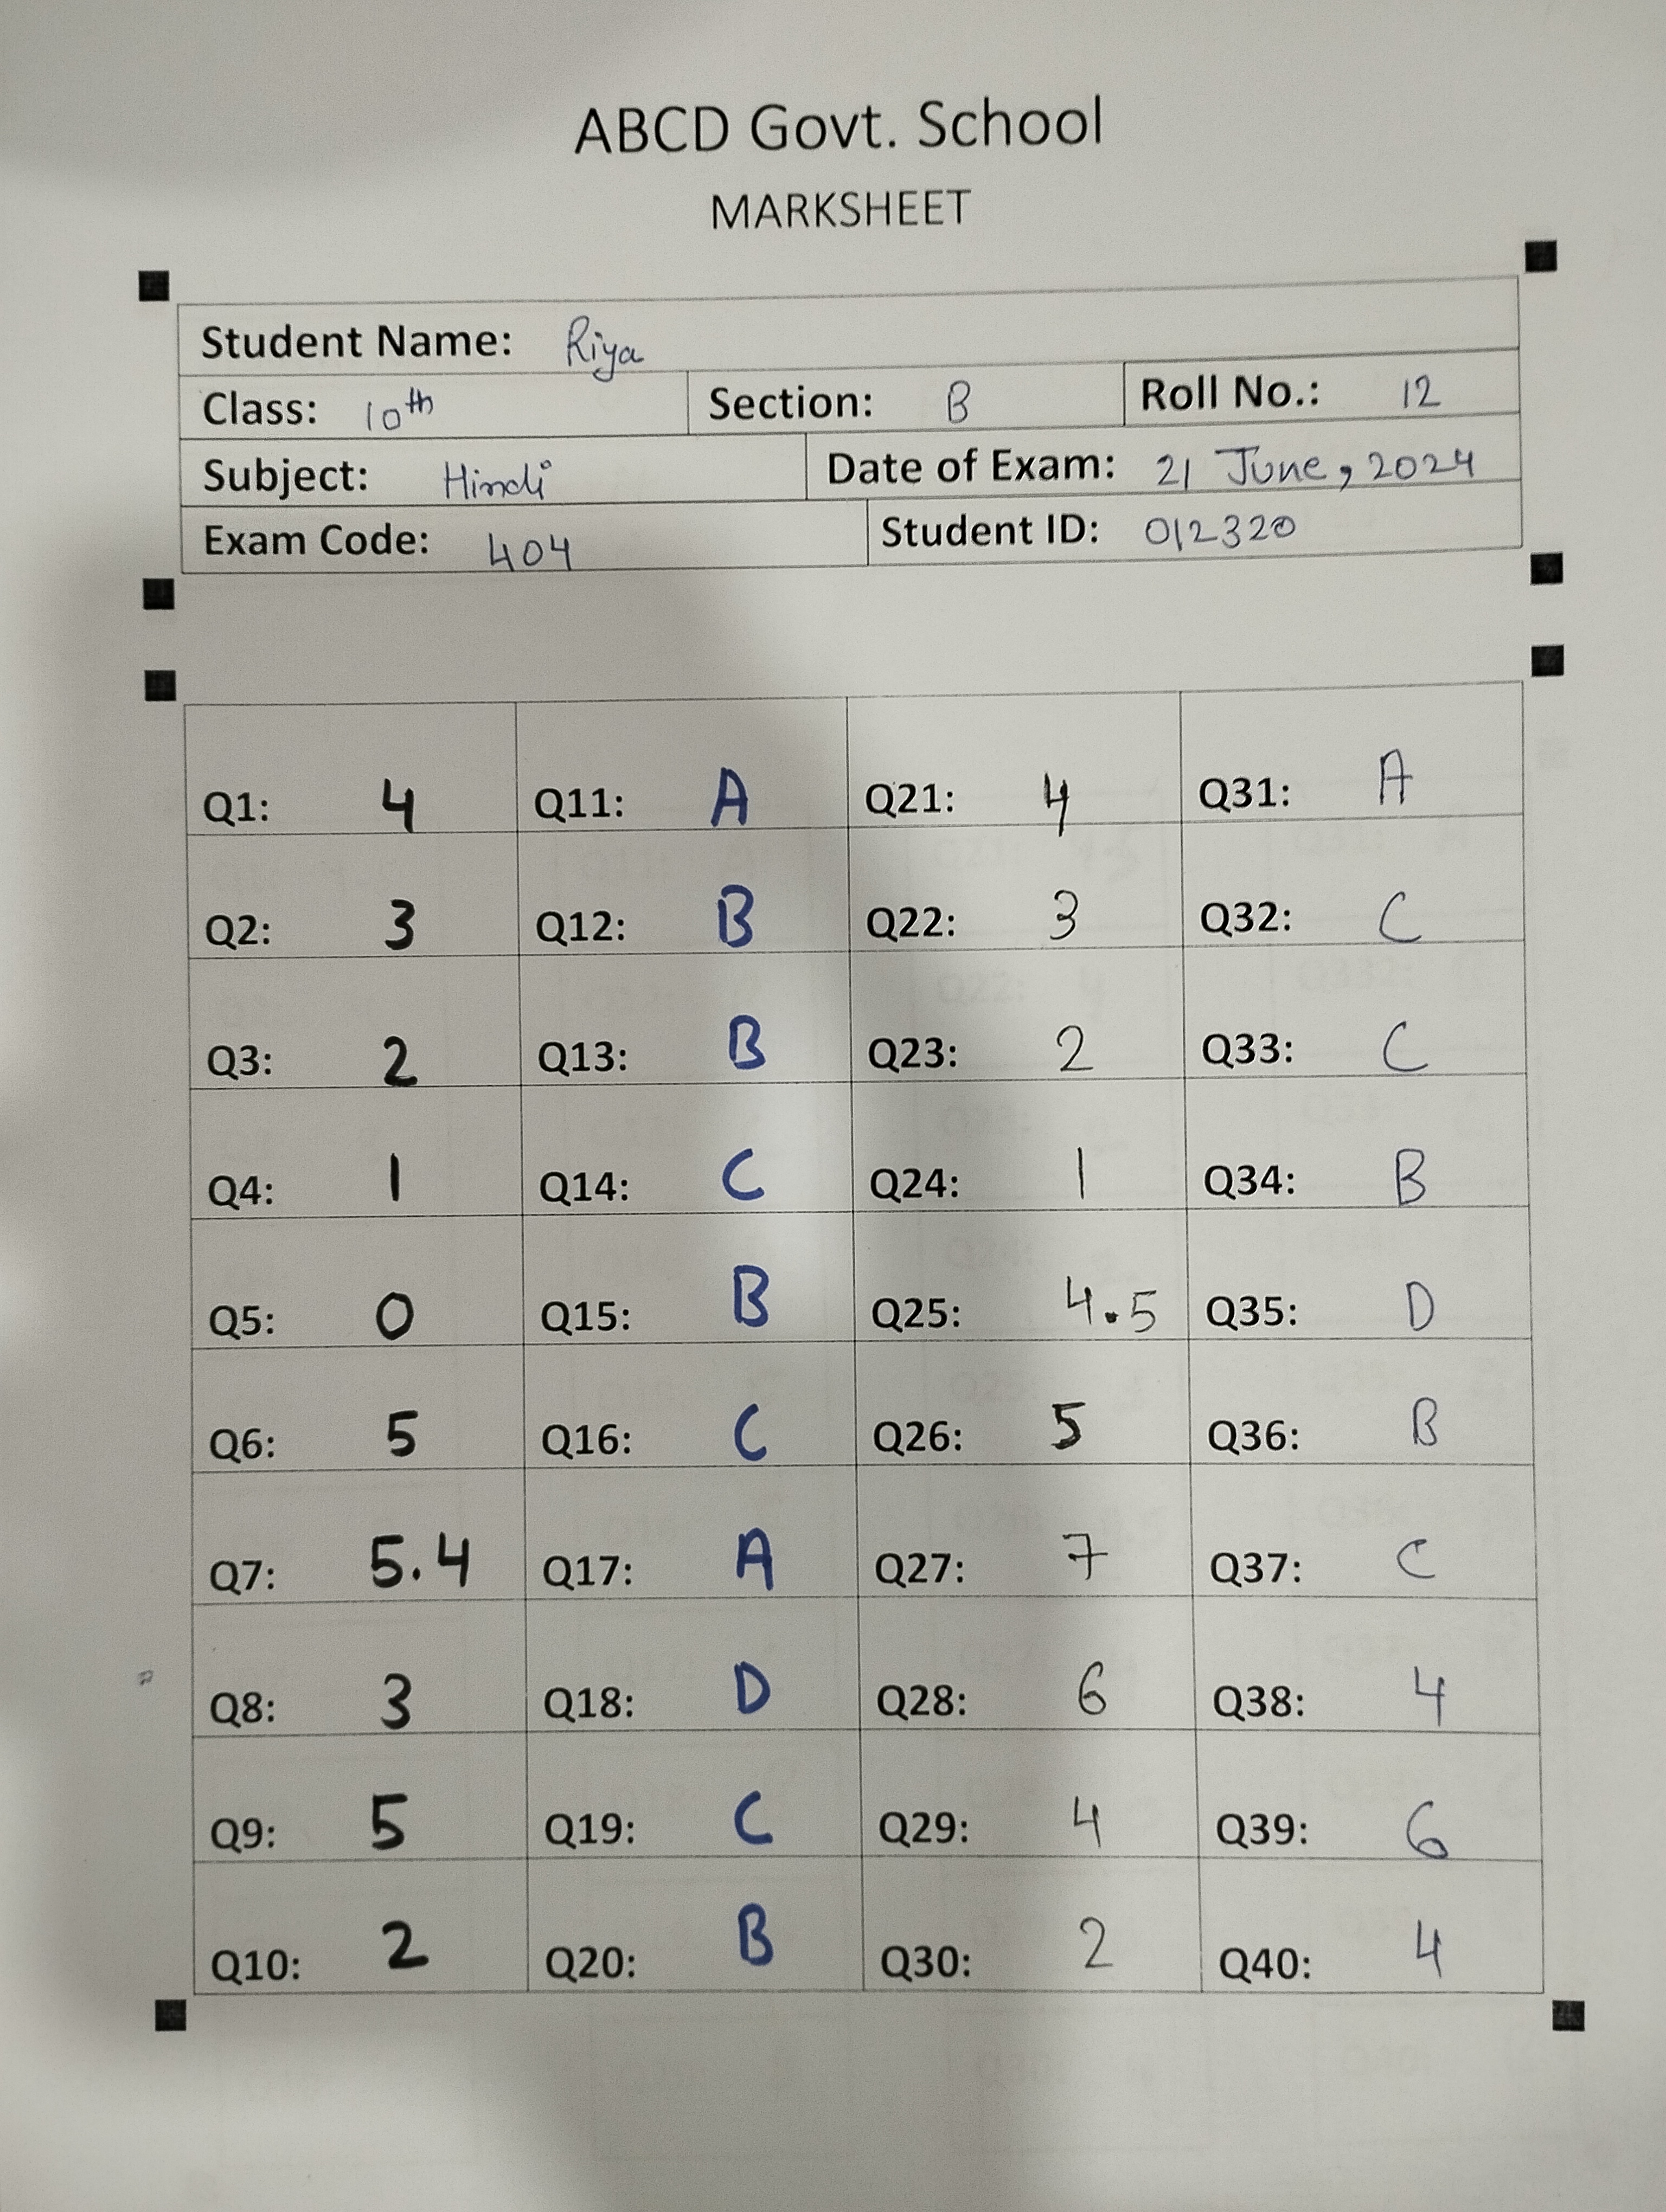 ABCD Govt. School
MARKSHEET
Student Name: Riya
Class: 10th Section: B Roll No.: 12
Subject: Hindi Date of Exam: 21 June, 2024
Exam Code: 404 Student ID: 012320
Q1: 4 Q11: A Q21: 4 Q31: A
Q2: 3 Q12: B Q22: 3 Q32: C
Q3: 2 Q13: B Q23: 2 Q33: C
Q4: 1 Q14: C Q24: 1 Q34: B
Q5: 0 Q15: B Q25: 4.5 Q35: D
Q6: 5 Q16: C Q26: 5 Q36: B
Q7: 5.4 Q17: A Q27: 7 Q37: C
Q8: 3 Q18: D Q28: 6 Q38: 4
Q9: 5 Q19: C Q29: 4 Q39: 6
Q10: 2 Q20: B Q30: 2 Q40: 4